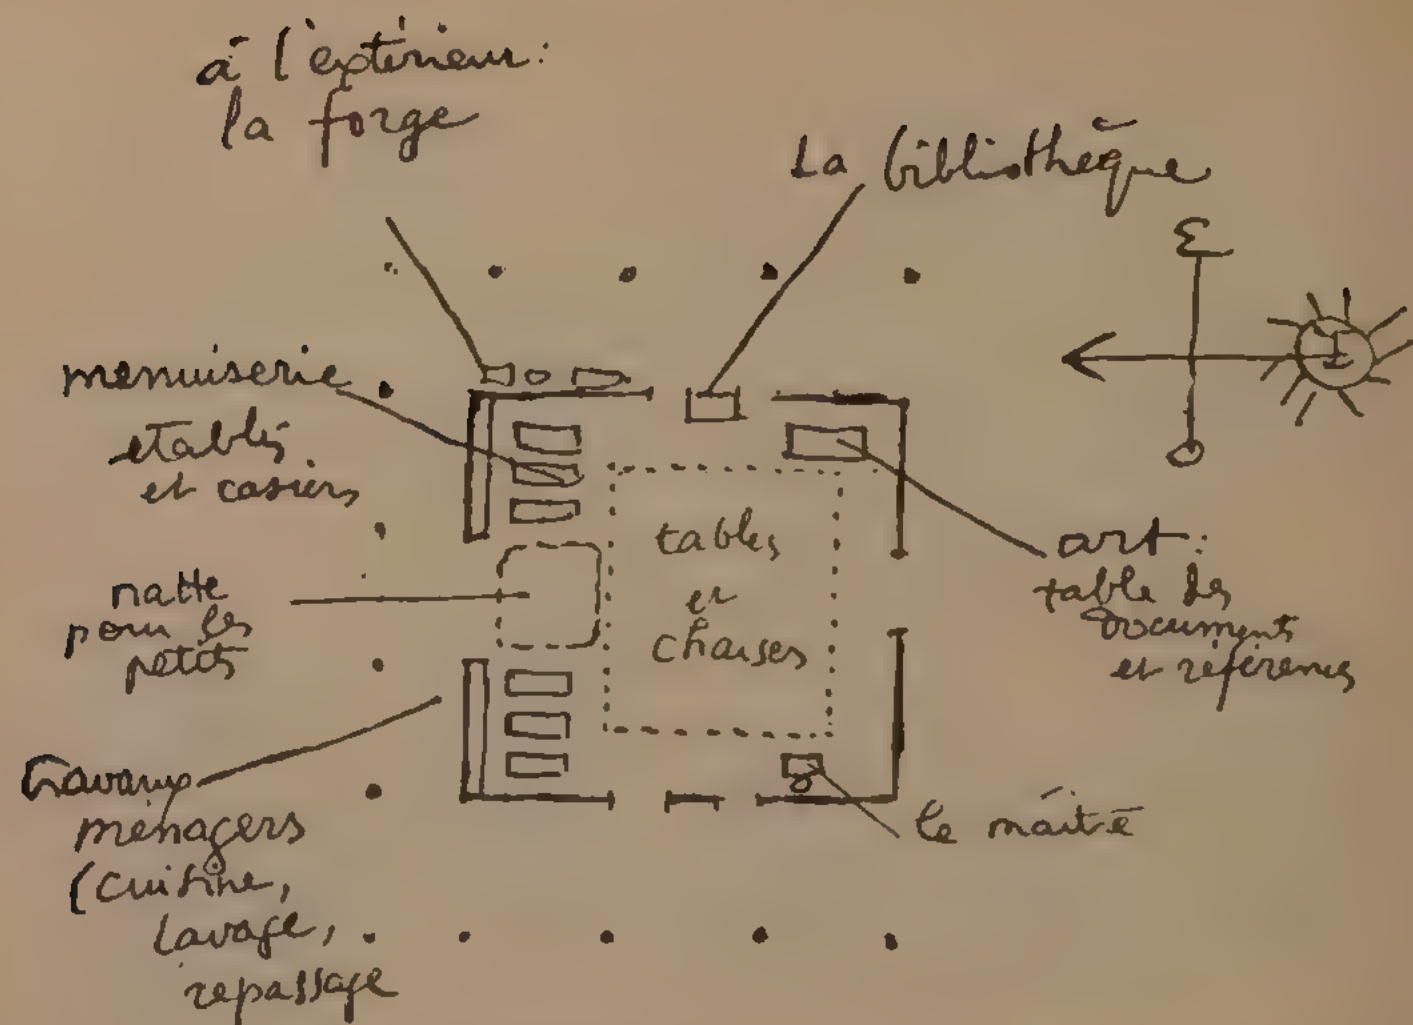 à l'extérieur:
la forge
La bibliothèque
E
menuiserie
établis
et casiers
natte
pour les
petits
tables
et
chaises
art:
table des
documents
et références
travaux
ménagers
(cuisine,
lavage,
repassage
le maître